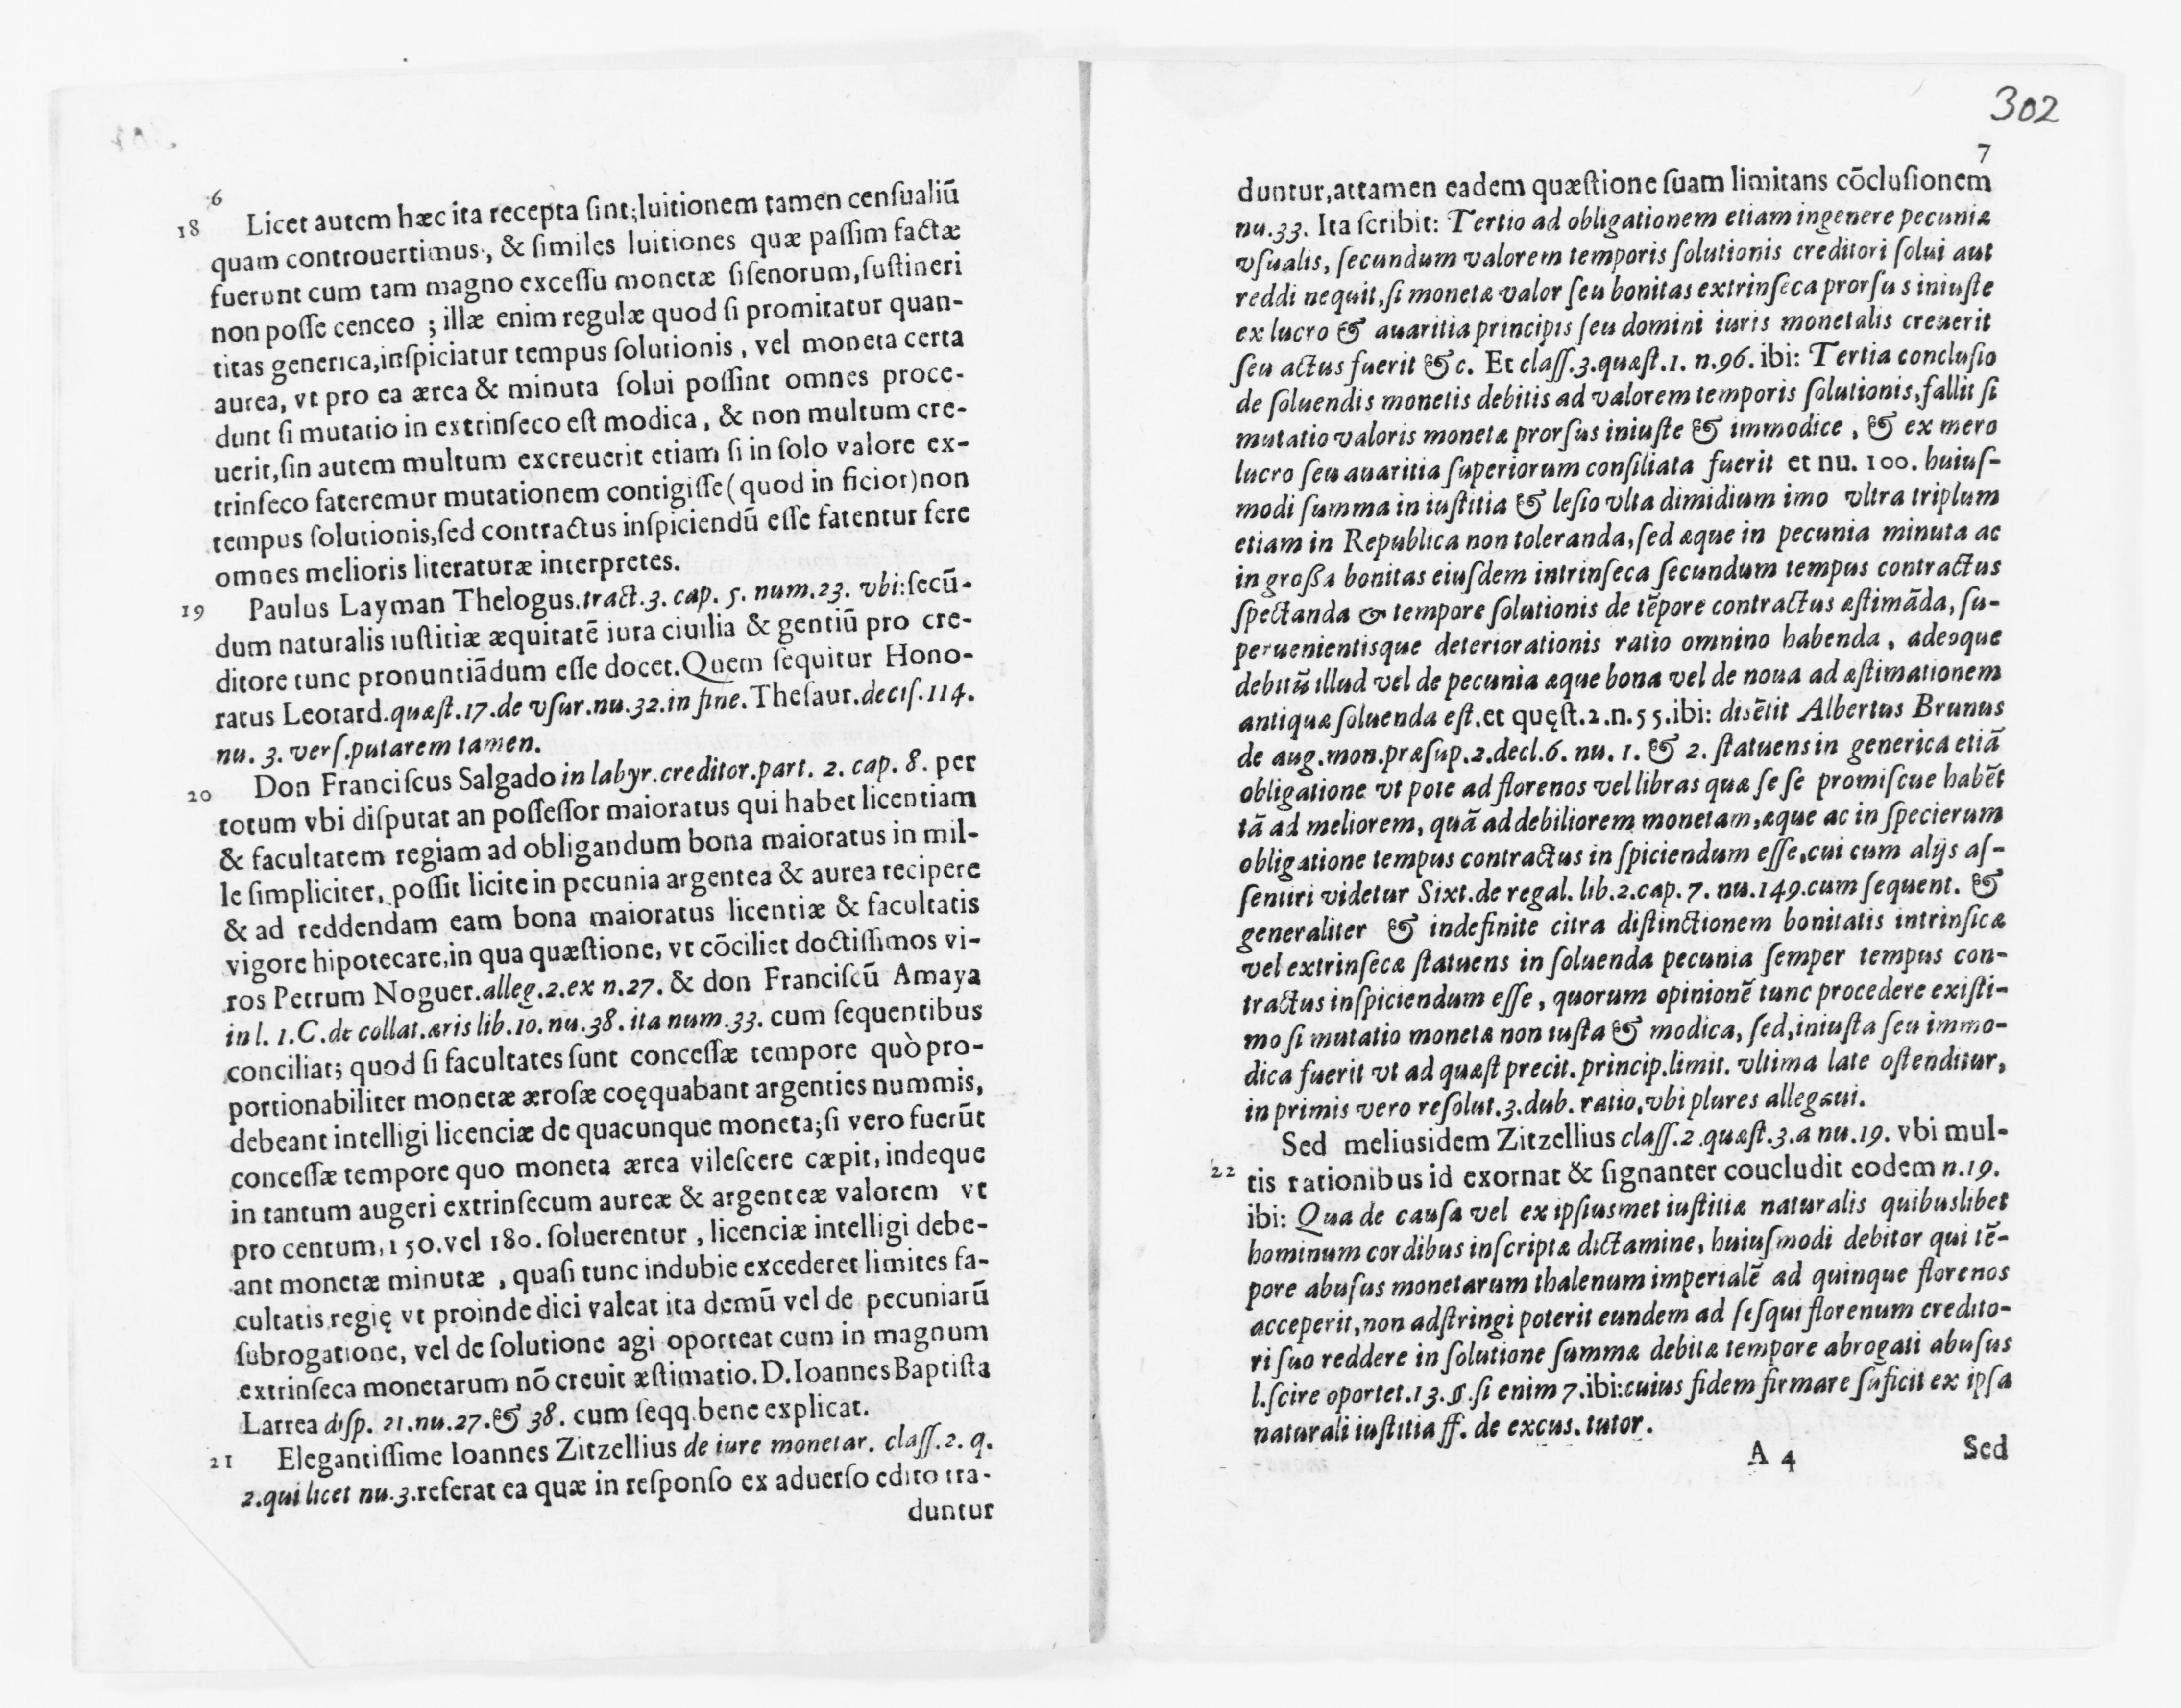 6
18 Licet autem hæc ita recepta ſint; luitionem tamen cenſualiũ
quam controuertimus, & ſimiles luitiones quæ paſſim factæ
fuerunt cum tam magno exceſſu monetæ ſiſenorum, ſuſtineri
non poſſe cenceo ; illæ enim regulæ quod ſi promitatur quan-
titas generica, inſpiciatur tempus ſolutionis, vel moneta certa
aurea, vt pro ea ærea & minuta ſolui poſſint omnes proce-
dunt ſi mutatio in extrinſeco eſt modica, & non multum cre-
uerit, ſin autem multum excreuerit etiam ſi in ſolo valore ex-
trinſeco fateremur mutationem contigiſſe (quod in ficior) non
tempus ſolutionis, ſed contractus inſpiciendũ eſſe fatentur fere
omnes melioris literaturæ interpretes.
19 Paulus Layman Thelogus. tract. 3. cap. 5. num. 23. vbi: ſecũ-
dum naturalis iuſtitiæ æquitatẽ iura ciuilia & gentiũ pro cre-
ditore tunc pronuntiãdum eſſe docet. Quem ſequitur Hono-
ratus Leotard. quæſt. 17. de vſur. nu. 32. in fine. Theſaur. deciſ. 114.
nu. 3. verſ. putarem tamen.
20 Don Franciſcus Salgado in labyr. creditor. part. 2. cap. 8. per
totum vbi diſputat an poſſeſſor maioratus qui habet licentiam
& facultatem regiam ad obligandum bona maioratus in mil-
le ſimpliciter, poſſit licite in pecunia argentea & aurea recipere
& ad reddendam eam bona maioratus licentiæ & facultatis
vigore hipotecare, in qua quæſtione, vt cõciliet doctiſſimos vi-
ros Petrum Noguer. alleg. 2. ex n. 27. & don Franciſcũ Amaya
in l. 1. C. de collat. æris lib. 10. nu. 38. ita num. 33. cum ſequentibus
conciliat; quod ſi facultates ſunt conceſſæ tempore quò pro-
portionabiliter monetæ æroſæ coęquabant argenties nummis,
debeant intelligi licenciæ de quacunque moneta; ſi vero fuerũt
conceſſæ tempore quo moneta ærea vileſcere cæpit, indeque
in tantum augeri extrinſecum aureæ & argenteæ valorem vt
pro centum, 150. vel 180. ſoluerentur, licenciæ intelligi debe-
ant monetæ minutæ, quaſi tunc indubie excederet limites fa-
cultatis regię vt proinde dici valeat ita demũ vel de pecuniarũ
ſubrogatione, vel de ſolutione agi oporteat cum in magnum
extrinſeca monetarum nõ creuit æſtimatio. D. Ioannes Baptiſta
Larrea diſp. 21. nu. 27. & 38. cum ſeqq. bene explicat.
21 Elegantiſſime Ioannes Zitzellius de iure monetar. claſſ. 2. q.
2. qui licet nu. 3. referat ea quæ in reſponſo ex aduerſo edito tra-
duntur
302
7
duntur, attamen eadem quæſtione ſuam limitans cõcluſionem
nu. 33. Ita ſcribit: Tertio ad obligationem etiam ingenere pecuniæ
vſualis, ſecundum valorem temporis ſolutionis creditori ſolui aut
reddi nequit, ſi monetæ valor ſeu bonitas extrinſeca prorſus iniuſte
ex lucro & auaritia principis ſeu domini iuris monetalis creuerit
ſeu actus fuerit &c. Et claſſ. 3. quæſt. 1. n. 96. ibi: Tertia concluſio
de ſoluendis monetis debitis ad valorem temporis ſolutionis, fallit ſi
mutatio valoris monetæ prorſus iniuſte & immodice, & ex mero
lucro ſeu auaritia ſuperiorum conſiliata fuerit et nu. 100. huiuſ-
modi ſumma in iuſtitia & leſio vlta dimidium imo vltra triplum
etiam in Republica non toleranda, ſed æque in pecunia minuta ac
in groſſa bonitas eiuſdem intrinſeca ſecundum tempus contractus
ſpectanda & tempore ſolutionis de tẽpore contractus æſtimãda, ſu-
peruenientisque deteriorationis ratio omnino habenda, adeoque
debitũ illud vel de pecunia æque bona vel de noua ad æſtimationem
antiquæ ſoluenda eſt. et quęſt. 2. n. 55. ibi: disẽtit Albertus Brunus
de aug. mon. præſup. 2. decl. 6. nu. 1. & 2. ſtatuens in generica etiã
obligatione vt pote ad florenos vel libras quæ ſe ſe promiſcue habẽt
tã ad meliorem, quã ad debiliorem monetam, æque ac in ſpecierum
obligatione tempus contractus in ſpiciendum eſſe, cui cum alijs aſ-
ſentiri videtur Sixt. de regal. lib. 2. cap. 7. nu. 149. cum ſequent. &
generaliter & indefinite citra diſtinctionem bonitatis intrinſicæ
vel extrinſecæ ſtatuens in ſoluenda pecunia ſemper tempus con-
tractus inſpiciendum eſſe, quorum opinionẽ tunc procedere exiſti-
mo ſi mutatio monetæ non iuſta & modica, ſed, iniuſta ſeu immo-
dica fuerit vt ad quæſt precit. princip. limit. vltima late oſtenditur,
in primis vero reſolut. 3. dub. ratio, vbi plures allegaui.
Sed meliusidem Zitzellius claſſ. 2. quæſt. 3. a nu. 19. vbi mul-
22 tis rationibus id exornat & ſignanter coucludit eodem n. 19.
ibi: Qua de cauſa vel ex ipſiusmet iuſtitiæ naturalis quibuslibet
hominum cordibus inſcriptæ dictamine, huiuſmodi debitor qui tẽ-
pore abuſus monetarum thalenum imperialẽ ad quinque florenos
acceperit, non adſtringi poterit eundem ad ſeſqui florenum credito-
ri ſuo reddere in ſolutione ſummæ debitæ tempore abrogati abuſus
l. ſcire oportet. 13. §. ſi enim 7. ibi: cuius fidem firmare ſuficit ex ipſa
naturali iuſtitia ff. de excus. tutor.
A 4 Sed